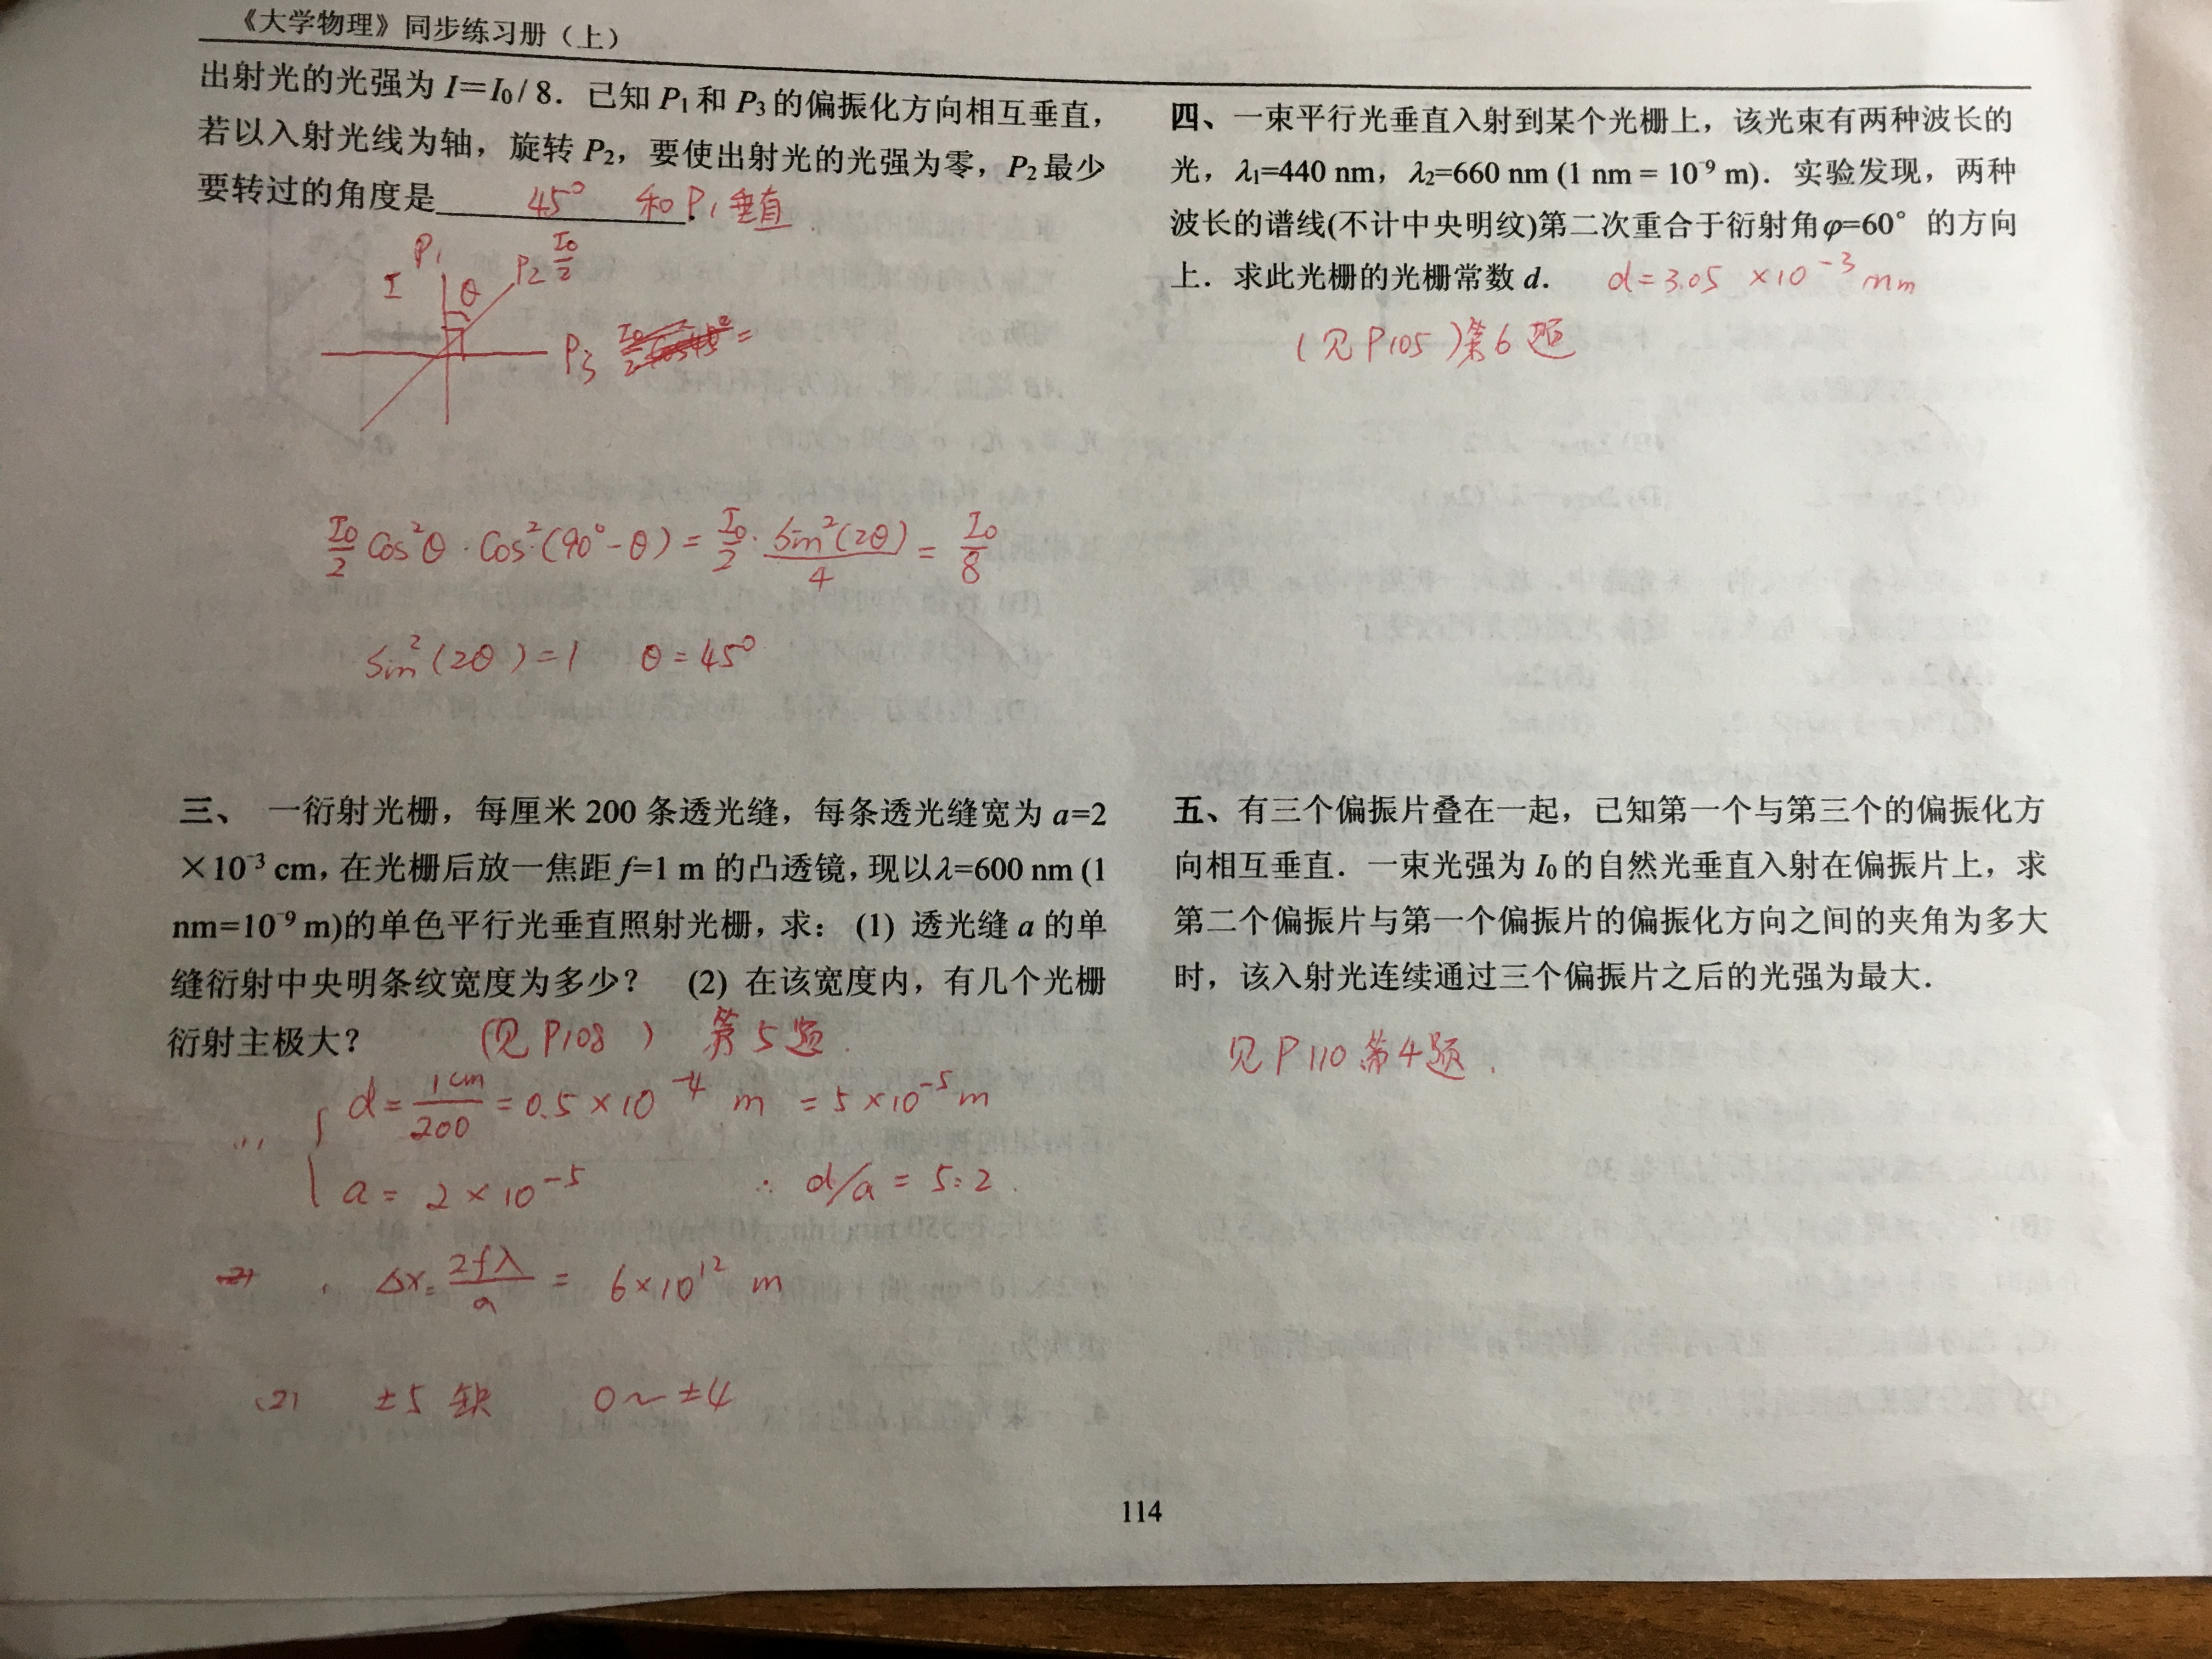 《大学物理》同步练习册（上）
出射光的光强为 I＝I₀/ 8．已知 P₁ 和 P₃ 的偏振化方向相互垂直，
若以入射光线为轴，旋转 P₂，要使出射光的光强为零，P₂ 最少
要转过的角度是 45° 和P₁垂直．
P₁ P₂ I₀/2
I θ
P₃
I₀/2 cos²θ · cos²(90°-θ) = I₀/2 · sin²(2θ)/4 = I₀/8
sin²(2θ)=1 θ=45°
三、 一衍射光栅，每厘米 200 条透光缝，每条透光缝宽为 a=2
×10⁻³ cm，在光栅后放一焦距 f=1 m 的凸透镜，现以λ=600 nm (1
nm=10⁻⁹ m)的单色平行光垂直照射光栅，求： (1) 透光缝 a 的单
缝衍射中央明条纹宽度为多少？ (2) 在该宽度内，有几个光栅
衍射主极大？ (见P108) 第5题.
(1) { d= 1cm/200 = 0.5×10⁻⁴ m = 5×10⁻⁵m
a= 2×10⁻⁵ ∴ d/a = 5:2.
Δx= 2fλ/a = 6×10¹² m
(2) ±5 缺 0～±4
四、一束平行光垂直入射到某个光栅上，该光束有两种波长的
光，λ₁=440 nm，λ₂=660 nm (1 nm = 10⁻⁹ m)．实验发现，两种
波长的谱线(不计中央明纹)第二次重合于衍射角φ=60° 的方向
上．求此光栅的光栅常数 d． d=3.05 ×10⁻³ mm
(见P105)第6题
五、有三个偏振片叠在一起，已知第一个与第三个的偏振化方
向相互垂直．一束光强为 I₀ 的自然光垂直入射在偏振片上，求
第二个偏振片与第一个偏振片的偏振化方向之间的夹角为多大
时，该入射光连续通过三个偏振片之后的光强为最大．
见P110第4题.
114